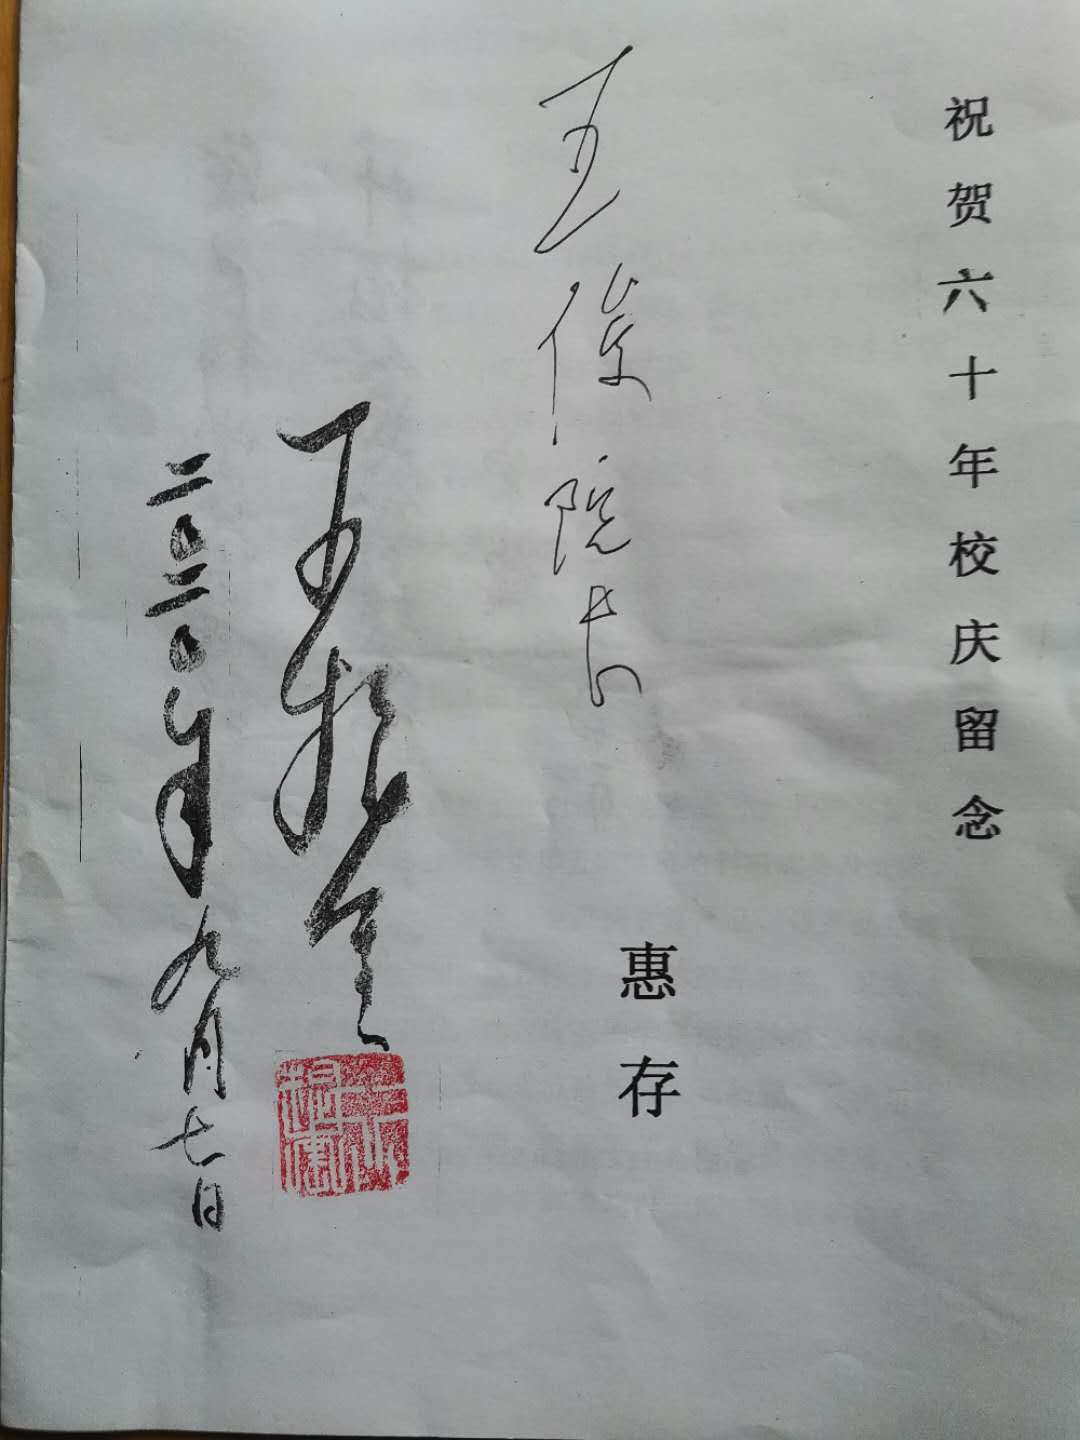 祝贺六十年校庆留念
王俊院长
惠存
王振全
二〇二〇年九月七日